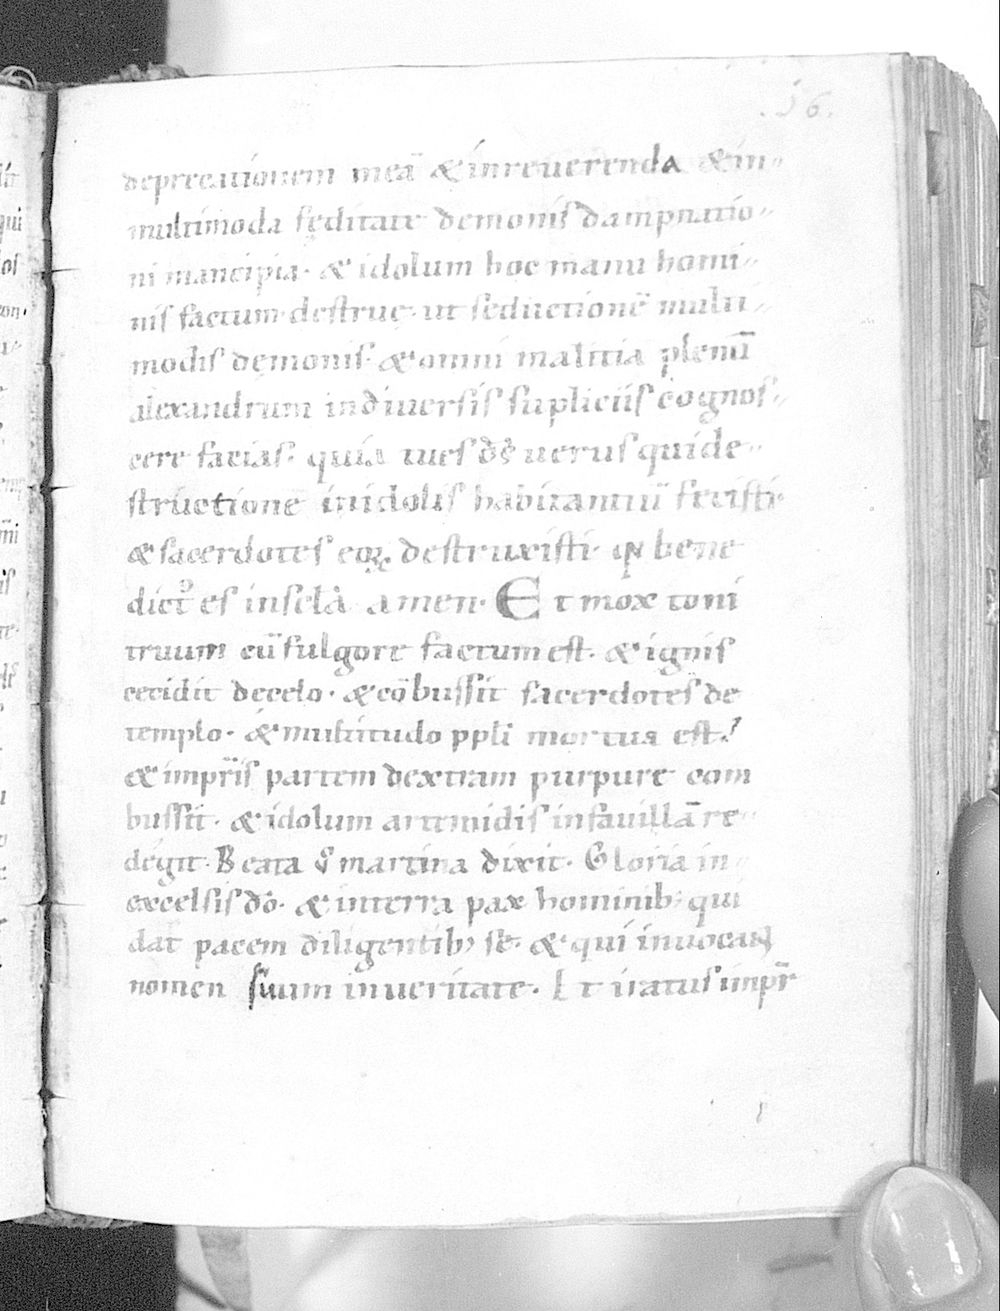 .56.
deprecationem meā & inreuerenda & in-
multimoda feditate demonis dampnatio-
ni mancipia· & idolum hoc manu homi-
nis factum destrue· ut seductionē multi-
modis demonis· & omni malitia plenū
alexandrum indiuersis supliciis cognos-
cere facias· quia tu es ds̄ uerus qui de-
structionē inidolis habitantiū fecisti·
& sacerdotes eoꝝ destruxisti· qn̄ bene
dict⁹ es insc̄la amen· Et mox toni
truum cū fulgore factum est· & ignis
cecidit decelo· & cōbussit sacerdotes de
templo· & multitudo ppl̄i mortua est·
& imprīs partem dextram purpure com
bussit· & idolum artemidis infauillā re-
degit· Beata ū martina dixit· Gloria in
excelsis dō· & interra pax hominib; qui
dat pacem diligentib; se· & qui inuocant
nomen suum inueritate· Et iratus imp̄r